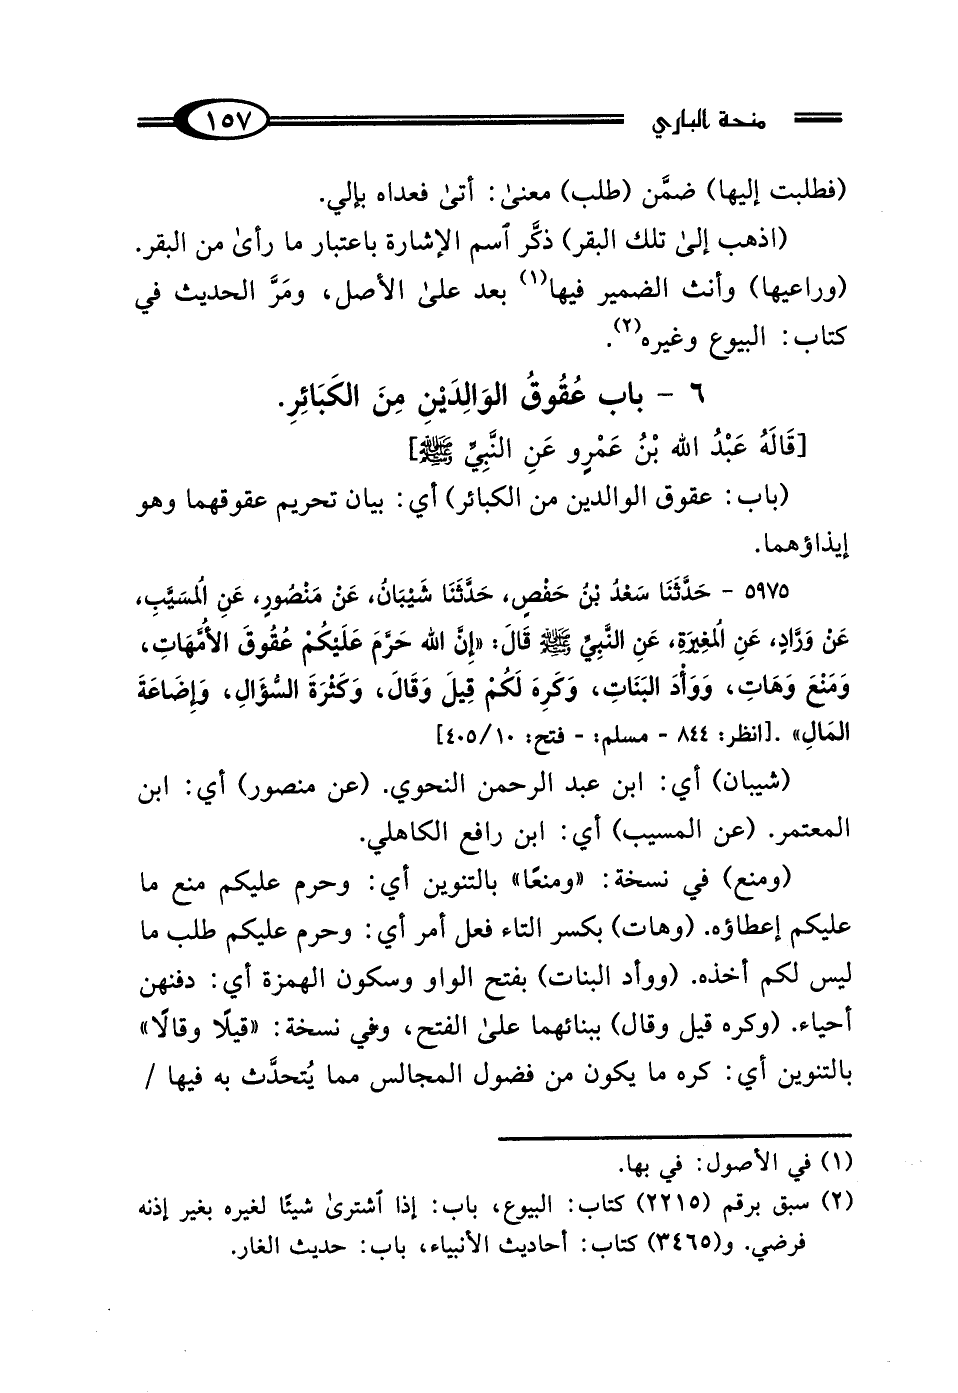 منحة الباري ١٥٧
(فطلبت إليها) ضمَّن (طلب) معنىٰ: أتىٰ فعداه بإلي.
(اذهب إلىٰ تلك البقر) ذكَّر ٱسم الإشارة باعتبار ما رأىٰ من البقر.
(وراعيها) وأنث الضمير فيها(١) بعد علىٰ الأصل، ومَرَّ الحديث في
كتاب: البيوع وغيره(٢).
٦ - باب عُقُوقُ الوَالِدَيْنِ مِنَ الكَبَائِرِ.
[قَالَهُ عَبْدُ الله بْنُ عَمْرٍو عَنِ النَّبِيِّ ﷺ]
(باب: عقوق الوالدين من الكبائر) أي: بيان تحريم عقوقهما وهو
إيذاؤهما.
٥٩٧٥ - حَدَّثَنَا سَعْدُ بْنُ حَفْصٍ، حَدَّثَنَا شَيْبَانُ، عَنْ مَنْصُورٍ، عَنِ المُسَيَّبِ،
عَنْ وَرَّادٍ، عَنِ المُغِيرَةِ، عَنِ النَّبِيِّ ﷺ قَالَ: «إِنَّ الله حَرَّمَ عَلَيْكُمْ عُقُوقَ الأُمَّهَاتِ،
وَمَنْعَ وَهَاتِ، وَوَأْدَ البَنَاتِ، وَكَرِهَ لَكُمْ قِيلَ وَقَالَ، وَكَثْرَةَ السُّؤَالِ، وَإِضَاعَةَ
المَالِ» .[انظر: ٨٤٤ - مسلم: - فتح: ١٠/ ٤٠٥]
(شيبان) أي: ابن عبد الرحمن النحوي. (عن منصور) أي: ابن
المعتمر. (عن المسيب) أي: ابن رافع الكاهلي.
(ومنع) في نسخة: «ومنعًا» بالتنوين أي: وحرم عليكم منع ما
عليكم إعطاؤه. (وهات) بكسر التاء فعل أمر أي: وحرم عليكم طلب ما
ليس لكم أخذه. (ووأد البنات) بفتح الواو وسكون الهمزة أي: دفنهن
أحياء. (وكره قيل وقال) ببنائهما علىٰ الفتح، وفي نسخة: «قيلًا وقالًا»
بالتنوين أي: كره ما يكون من فضول المجالس مما يُتحدَّث به فيها /
(١) في الأصول: في بها.
(٢) سبق برقم (٢٢١٥) كتاب: البيوع، باب: إذا ٱشترىٰ شيئًا لغيره بغير إذنه
فرضي. و(٣٤٦٥) كتاب: أحاديث الأنبياء، باب: حديث الغار.